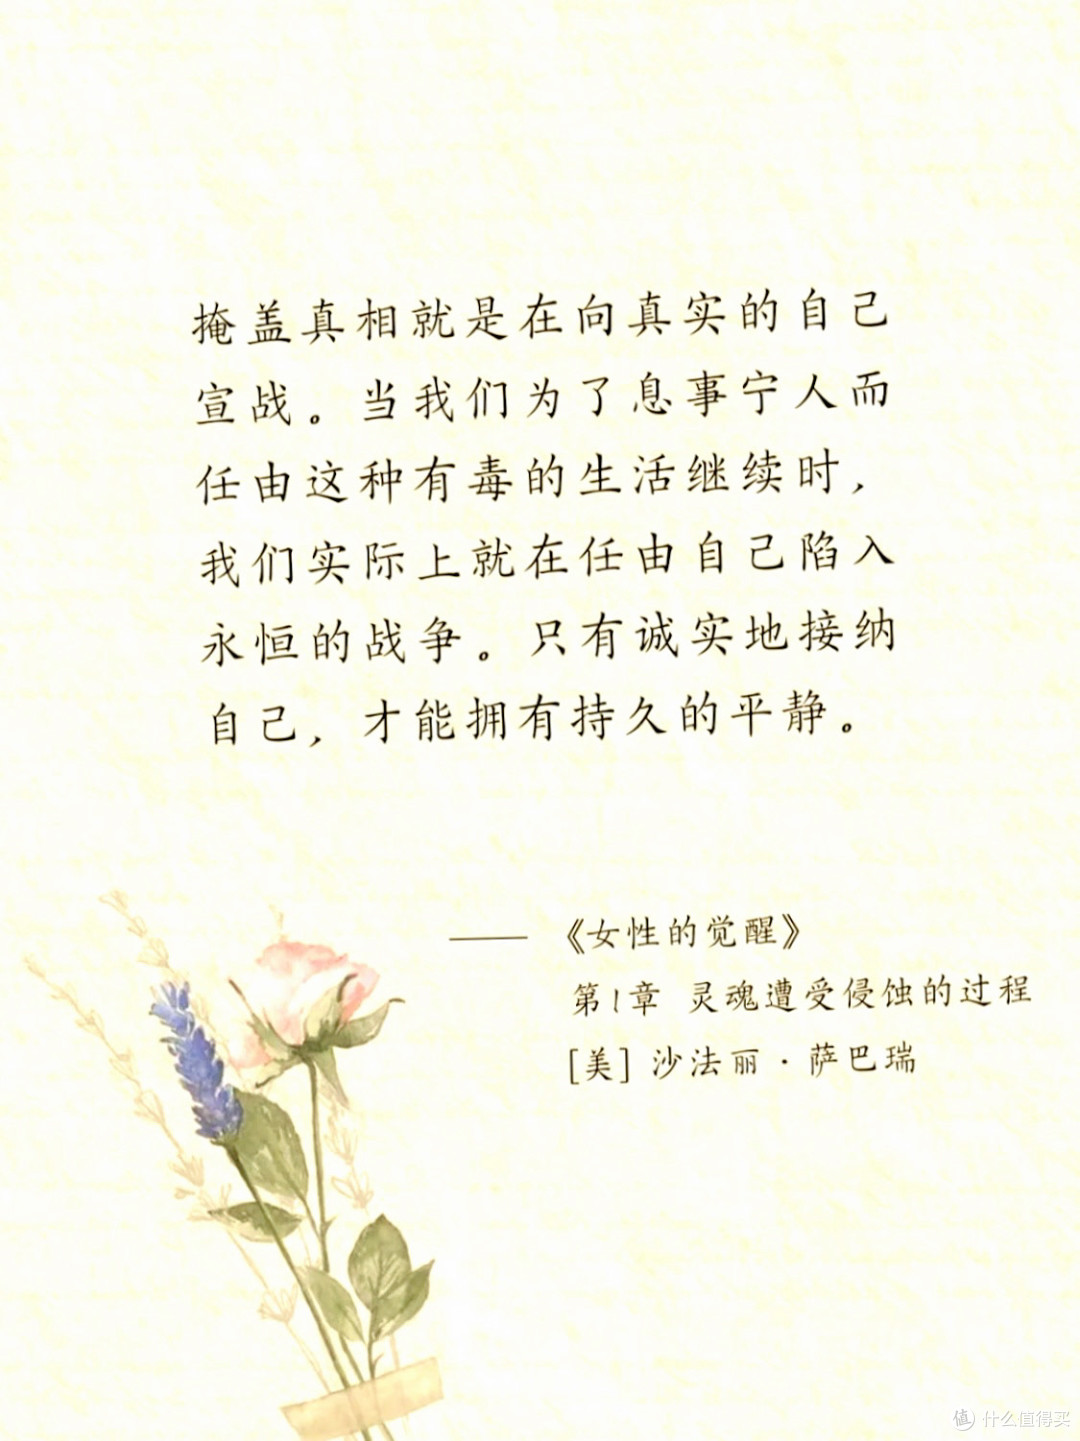 掩盖真相就是在向真实的自己
宣战。当我们为了息事宁人而
任由这种有毒的生活继续时，
我们实际上就在任由自己陷入
永恒的战争。只有诚实地接纳
自己，才能拥有持久的平静。
——《女性的觉醒》
第1章 灵魂遭受侵蚀的过程
[美] 沙法丽·萨巴瑞
值 什么值得买